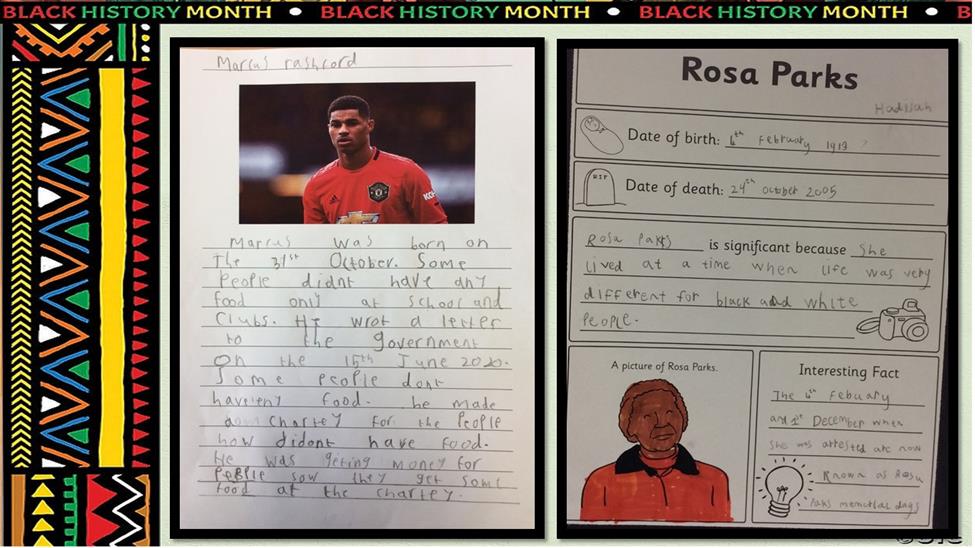 BLACK HISTORY MONTH • BLACK HISTORY MONTH • BLACK HISTORY MONTH • B
Marcus rashford
Marcus was born on
The 31st October. Some
People didnt have any
food only at school and
Clubs. He wrot a letter
to the government
On the 15th June 2020.
Some people dont
haveieny food. he made
a chartey for the people
how didont have food.
He was geting money for
people sow they get some
food at the chartey.
Rosa Parks
Hadisah
Date of birth: 4th February 1913
RIP
Date of death: 24th october 2005
Rosa Parks is significant because She
lived at a time when life was very
different for black and white
people.
A picture of Rosa Parks.
Interesting Fact
The 4th Febuary
and 1st December when
she was arrested are now
Known as Rosa
Paks memorial days